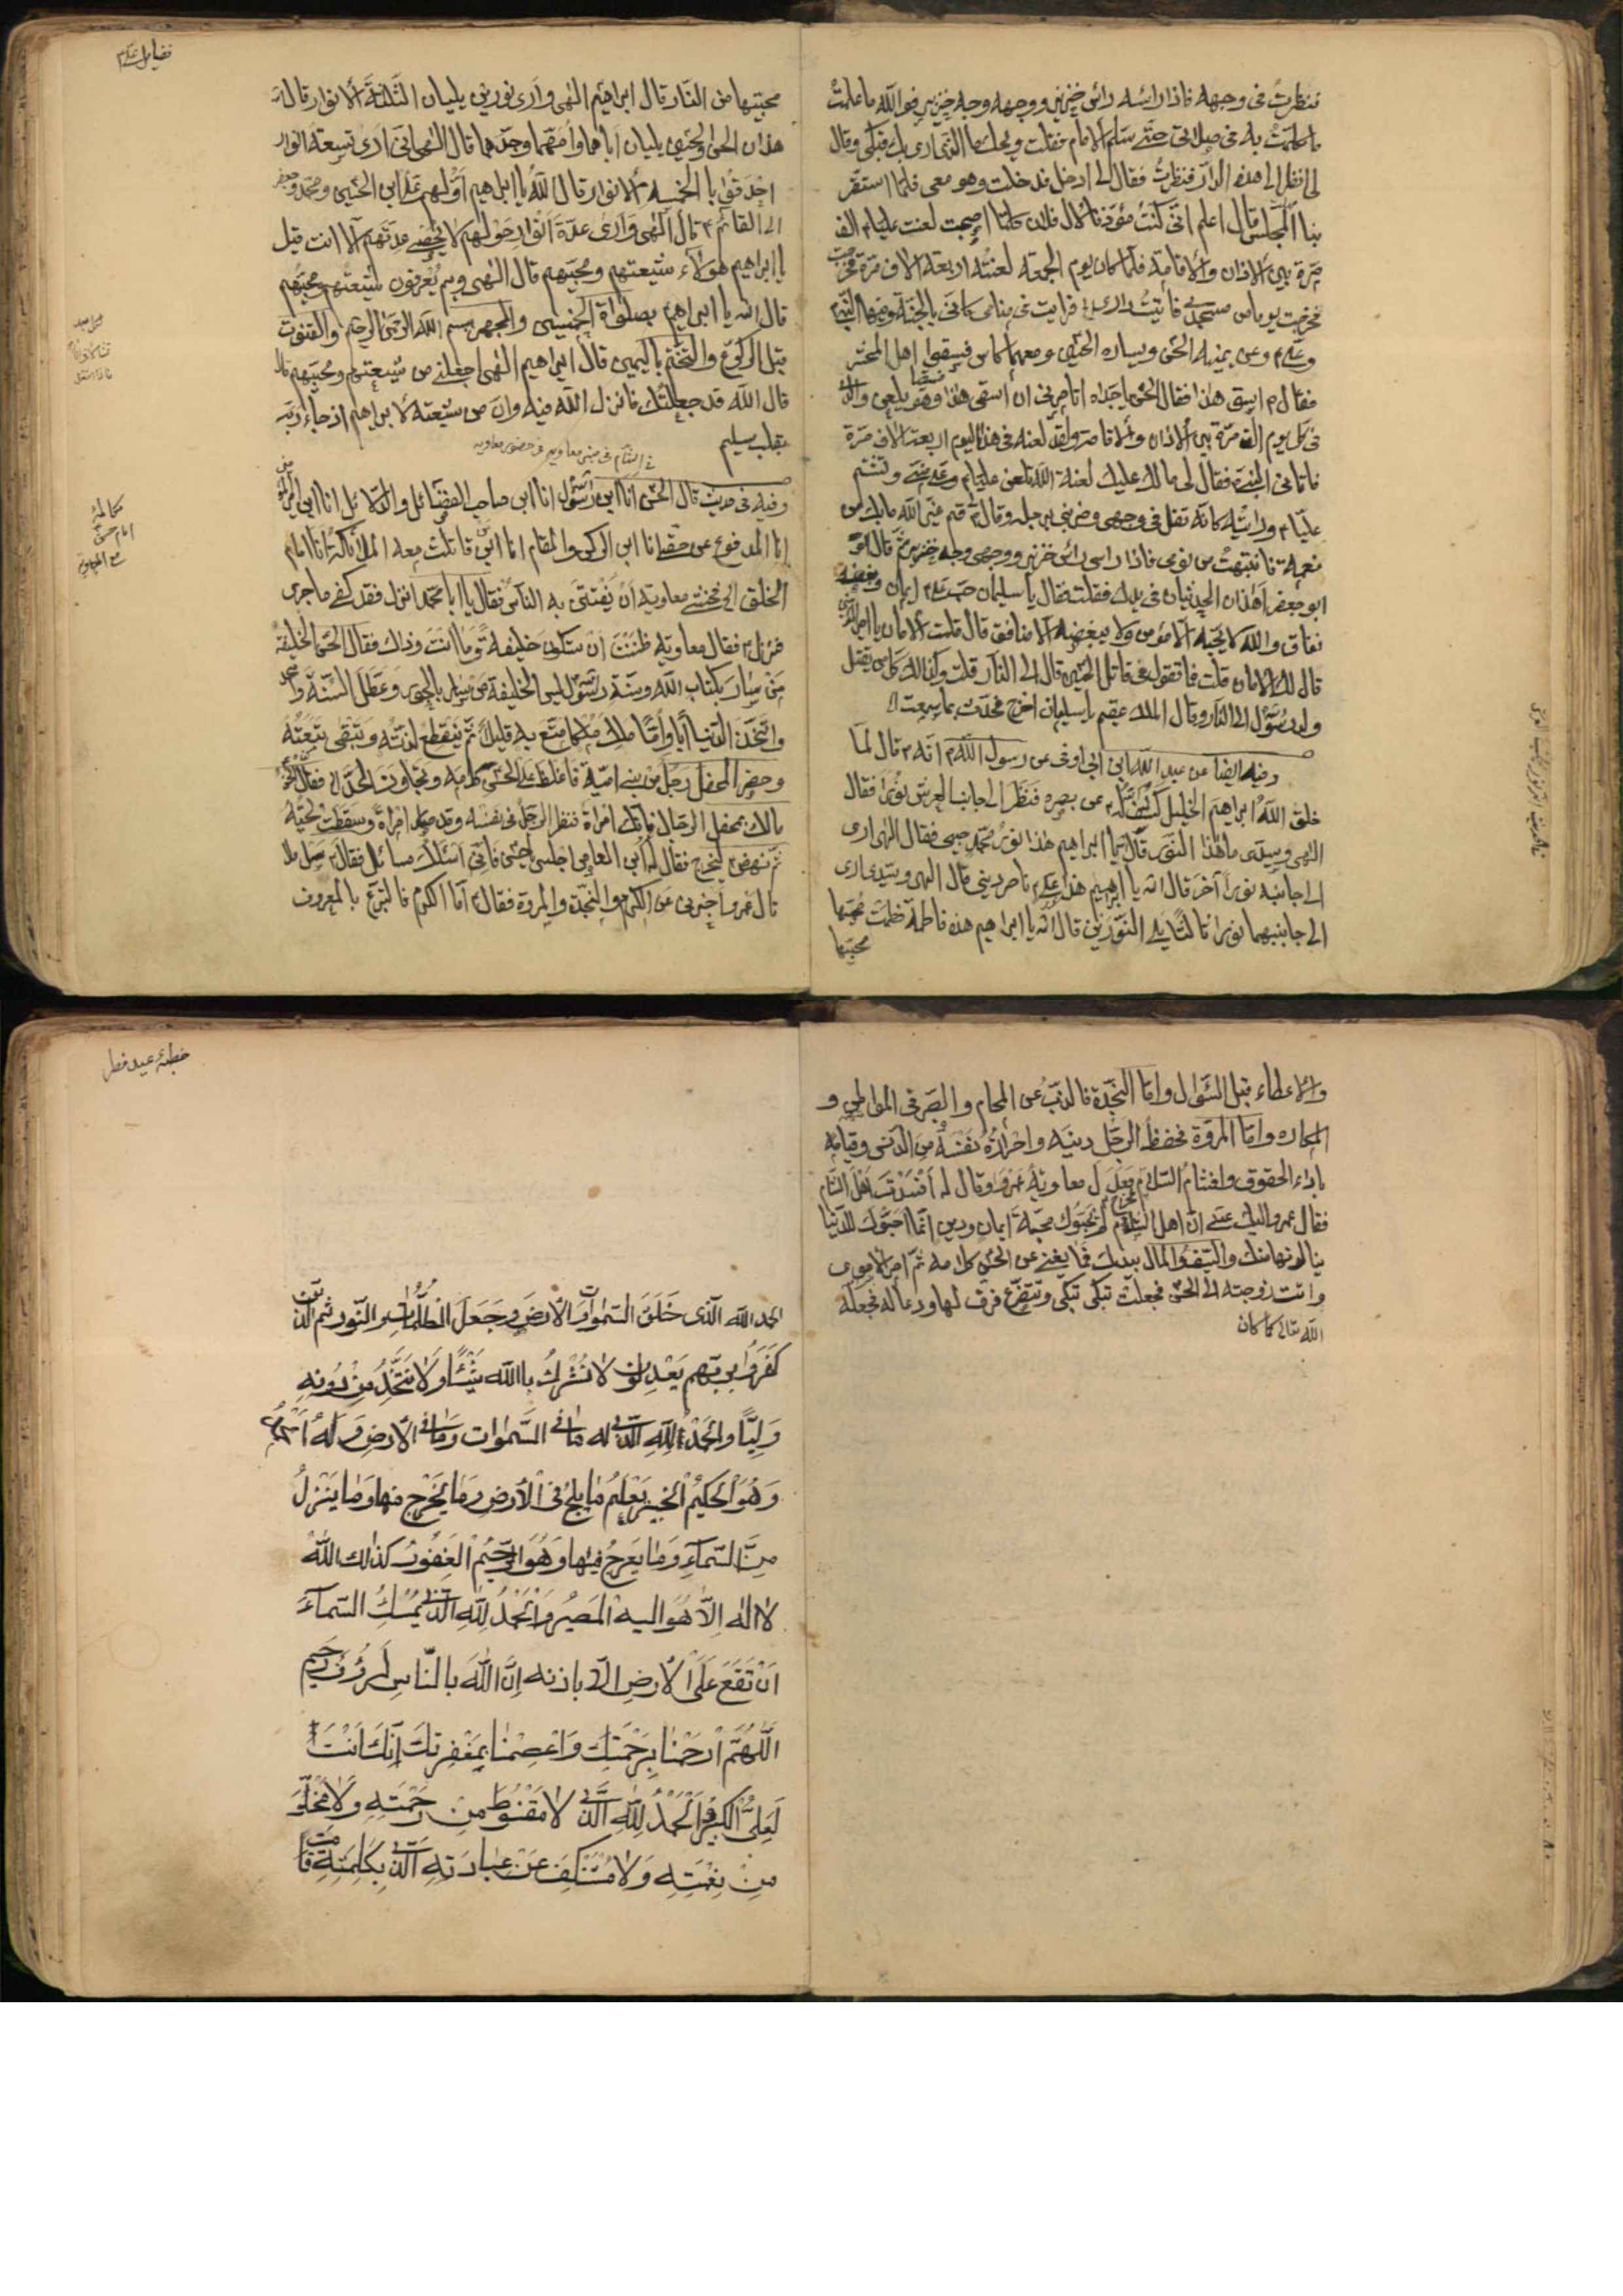 فنظرت في وجهه فاذا رأسه رأس خنزير ووجهه وجه خنزير فوالله ما علمت
ما تكلمت به في صلاتي حتى سلم الامام فقلت ويحك ما الذي ارى بك فبكى وقال
لي انظر الى هذه الدار فنظرت فقال لي ادخل فدخلت وهو معي فلما استقر
بنا المجلس قال اعلم اني كنت مؤذنا لآل فلان كلما اصبحت لعنت عليا م الف
مرة بين الاذان والاقامة فلما كان يوم الجمعة لعنته اربعة الاف مرة
فخرجت يوما من مسجدي فأتيت داري فرايت في منامي كاني بالجنة وفيها النبي
وعلي م وعن يمينه الحسن ويساره الحسين ومعهما كاس
فقال م اسق هذا فقال الحسن يا جداه اتامرني ان اسقي هذا وهو يلعن والدي
في كل يوم الف مرة بين الاذان والاقامة ولقد لعنه في هذا اليوم اربعة الاف مرة
فاتاني النبي فقال لي مالك عليك لعنة الله تلعن عليا م وعلي مني وتشتم
عليا م ورايته كانه تفل في وجهي وضربني برجله وقال قم غير الله ما بك من
نعمة فانتبهت من نومي فاذا راسي رأس خنزير ووجهي وجه خنزير ثم قال
ابو جعفر اهذان الحديثان في يدك فقلت لا فقال يا سليمان حب علي ايمان وبغضه
نفاق والله لا يحبه الا مؤمن ولا يبغضه الا منافق قال قلت الامان يا امير المؤمنين
قال لك الامان قلت فما تقول في قاتل الحسين قال الى النار قلت وكذلك كل من يقتل
ولد رسول الى النار وقال الملك عقيم يا سليمان اخرج فحدث بما سمعت
وفيه ايضا عن عبد الله ابن ابي اوفى عن رسول الله انه قال لما
خلق الله ابراهيم الخليل كشف له عن بصره فنظر الى جانب العرش نورا فقال
الهي وسيدي ما هذا النور قال يا ابراهيم هذا نور محمد صفيي فقال الهي ارى
الى جانبه نورا آخر قال الله يا ابراهيم هذا علي م ناصر ديني قال الهي وسيدي ارى
الى جانبهما نورا ثالثا يلي النورين قال الله يا ابراهيم هذه فاطمة فطمت محبيها
محبيها
فضايل علي م
محبيها من النار قال ابراهيم الهي وارى نورين يليان الثلثة الانوار قال
هذان الحسن والحسين يليان اباهما وامهما وجدهما قال الهي اني ارى تسعة انوار
احدقوا بالخمسة الانوار قال الله يا ابراهيم اولهم علي ابن الحسين ومحمد وجعفر
الى القائم م قال الهي وارى عدة انوار حولهم لا يحصي عدتهم الا انت قيل
يا ابراهيم هولاء شيعتهم ومحبيهم قال الهي وبم يعرفون شيعتهم ومحبيهم
قال الله يا ابراهيم بصلواة الخمسين والجهر ببسم الله الرحمن الرحيم والقنوت
قبل الركوع والتختم باليمين قال ابراهيم الهي اجعلني من شيعتهم ومحبيهم
قال الله قد جعلتك فانزل الله فيه وان من شيعته لابراهيم اذ جاء ربه
بقلب سليم
في الشام في منبر معاويه في حضور معاويه
وفيه في حديث قال الحسن انا ابن رسول الله انا ابن صاحب الفضائل والدلائل انا ابن امير المؤمنين
انا المدفوع عن حقي انا ابن الركن والمقام انا ابن من قاتلت معه الملائكة انا امام
الخلق الى فخشي معاوية أن يفتتن به الناس فقال يا ابا محمد انزل فقد كفى ما جرى
فنزل فقال معاوية ظننت ان ستكون خليفة وما انت وذاك فقال الحسن انما الخليفة
من سار بكتاب الله وسنة رسول ليس الخليفة من سار بالجور وعطل السنة
واتخذ الدنيا ابا واما ملك ملكا متع به قليلا ثم ينقطع لذته وتبقى تبعته
وحضر المحفل رجل من بني امية فاغلظ على الحسن كلامه وتجاوز الحد
مالك بمحفل الرجال فانك امراة فنظر الرجل في نفسه وقد صار امراة وسقطت لحيته
ثم نهض ليخرج فقال له ابن العاص اجلس حتى فاني اسئلك مسائل فقال سل
قال عمرو اخبرني عن الكرم والنجدة والمروة فقال اما الكرم فالتبرع بالمعروف
مكالمه
امام حسن
مع المعاويه
والاعطاء قبل السؤال واما النجدة فالذب عن المحارم والصبر في المواطن و
المكاره واما المروة فحفظ الرجل دينه واحرازه نفسه من الدنس وقيامه
باداء الحقوق وافشاء السلام فعذل معاوية عمروا وقال له افسدت اهل الشام
فقال عمرو اليك عني ان اهل الشام لم يحبوك محبة ايمان ودين انما احبوك للدنيا
ينالونها منك والسيف والمال بيدك فما يغني عن الحسن كلامه ثم
واتت زوجته الى الحسن فجعلت تبكي تبكي وتتضرع فرق لها ودعا له فجعله
الله تعالى كما كان
خطبهٔ عيد فطر
الحمد لله الذى خلق السموات والارض وجعل الظلمات والنور ثم الذين
كفروا بربهم يعدلون لا نشرك بالله شيئا ولا نتخذ من دونه
وليا والحمد لله الذي له ما في السموات وما في الارض وله الحمد
وهو الحكيم الخبير يعلم ما يلج في الارض وما يخرج منها وما ينزل
من السماء وما يعرج فيها وهو الرحيم الغفور كذلك الله
لا اله الا هو اليه المصير والحمد لله الذي يمسك السماء
ان تقع على الارض الا باذنه ان الله بالناس لرؤف رحيم
اللهم ارحمنا برحمتك واعصمنا بمغفرتك انك انت
العلي الكبير والحمد لله الذي لا مقنوط من رحمته ولا مخلو
من نعمته ولا مستنكف عن عبادته الذي بكلمته قامت